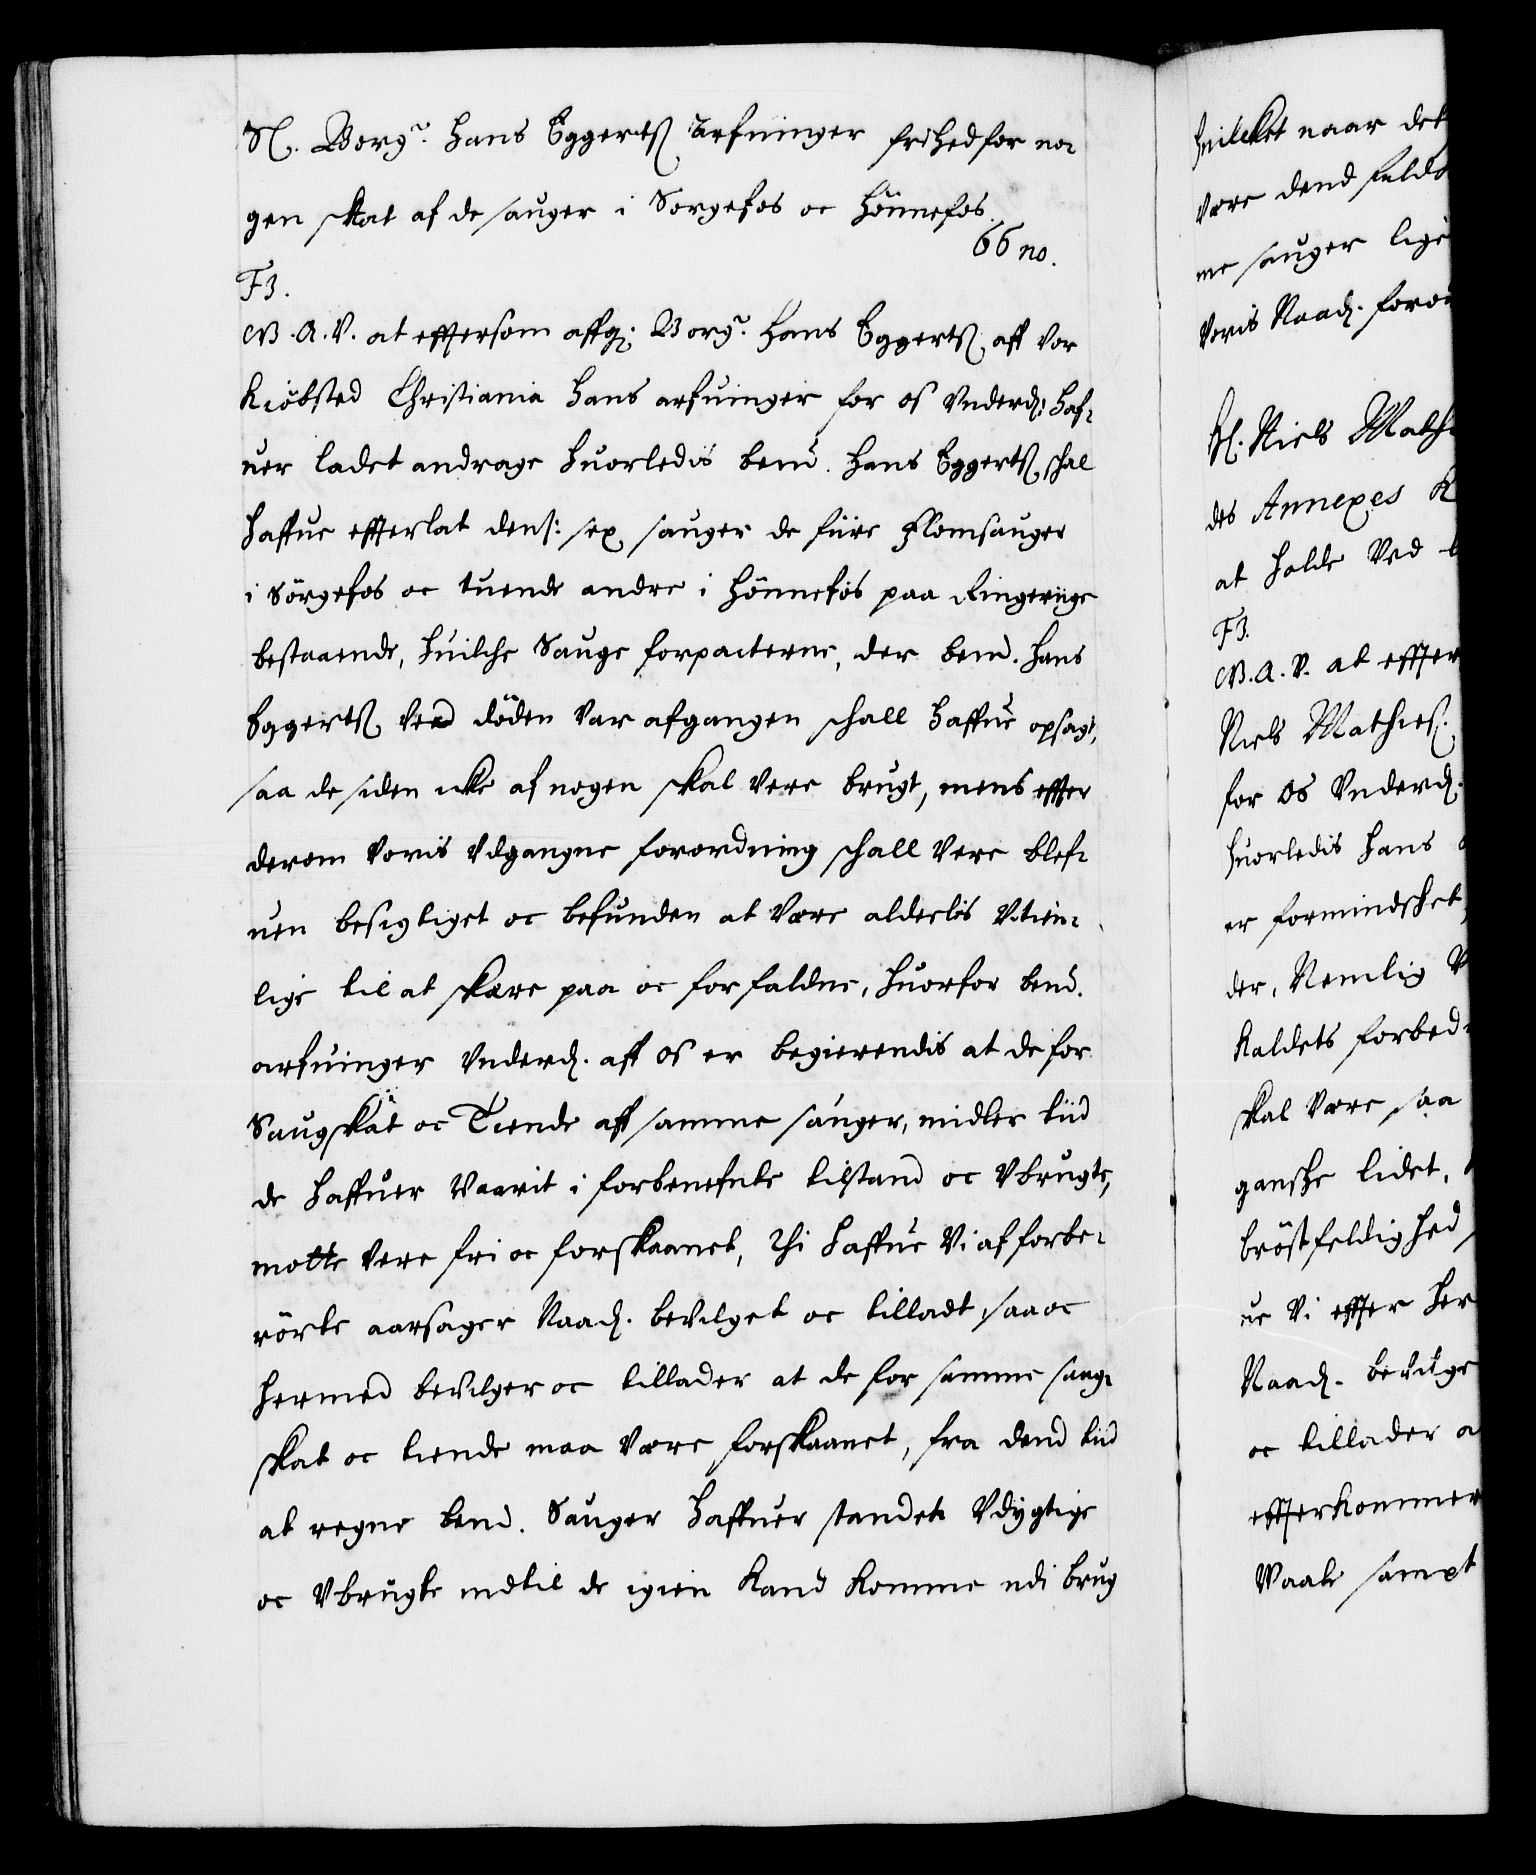 Sl. Borgr. Hans Eggertß. Arfuinger frihed for no-
gen skat af de sauger i Sörgefos oc Hönnefos.
66 no.
F3.
G.A.V. at effterson affg: Borgr. Hans Eggertß. aff vor
Kiöbsted Christiania Hans arfuinger for os Underd: haf-
uer ladet andrage huorledis bemd. Hans Eggertß. schal
haffue effterlat dens: sex sauger de fiire Flomsauger
i Sörgefos oc tuende andre i Hönnefos paa Ringeriige
bestaaende, huilche Sauge forpacterne, der bemd. Hans
Eggertß. Ved döden Var afgangen schall haffue opsagt,
saa de siden icke af nogen skal Vere brugt, mens effter
derom Voris Udgangne forordning schall Vere blef-
uen besigtiget oc befunden at Være aldeelis Utien-
lige til at skære paa oc forfaldne, huorfor bemd.
arfuinger Underd. aff os er begierendis at de for
Saugskat oc Tiende aff samme sauger, midler tiid
de haffuer Vaarit i forbenefnte tilstand oc Ubrugte,
motte Vere fri oc forskaanet, Thi haffue Vi af forbe-
rörte aarsager Naad. bevilget oc tilladt saa oc
hermed bevilger oc tillader at de for samme saug-
skat oc tiende maa Være forskaanet, fra dend tiid
at regne bemd. Sauger haffuer standet Udygtige
oc Ubrugte indtil de igien Kand Komme udi brug
huilcket naar det
Være dend fulde
me sauger lige
Voris Naad. foror
Hl. Niels Mathi
des Annexes K
at holde Ved
F3.
G.A.V. at effter
Niels Mathieß.
for os Underd.
huorledis hans
er formindschet,
der, Nemlig
Kaldets forbed-
skal Være saa
gansche lidet,
bröstfeldighed
ue Vi effter her
Naad. bevilge
oc tillader a
effterkommer
Maate sampt